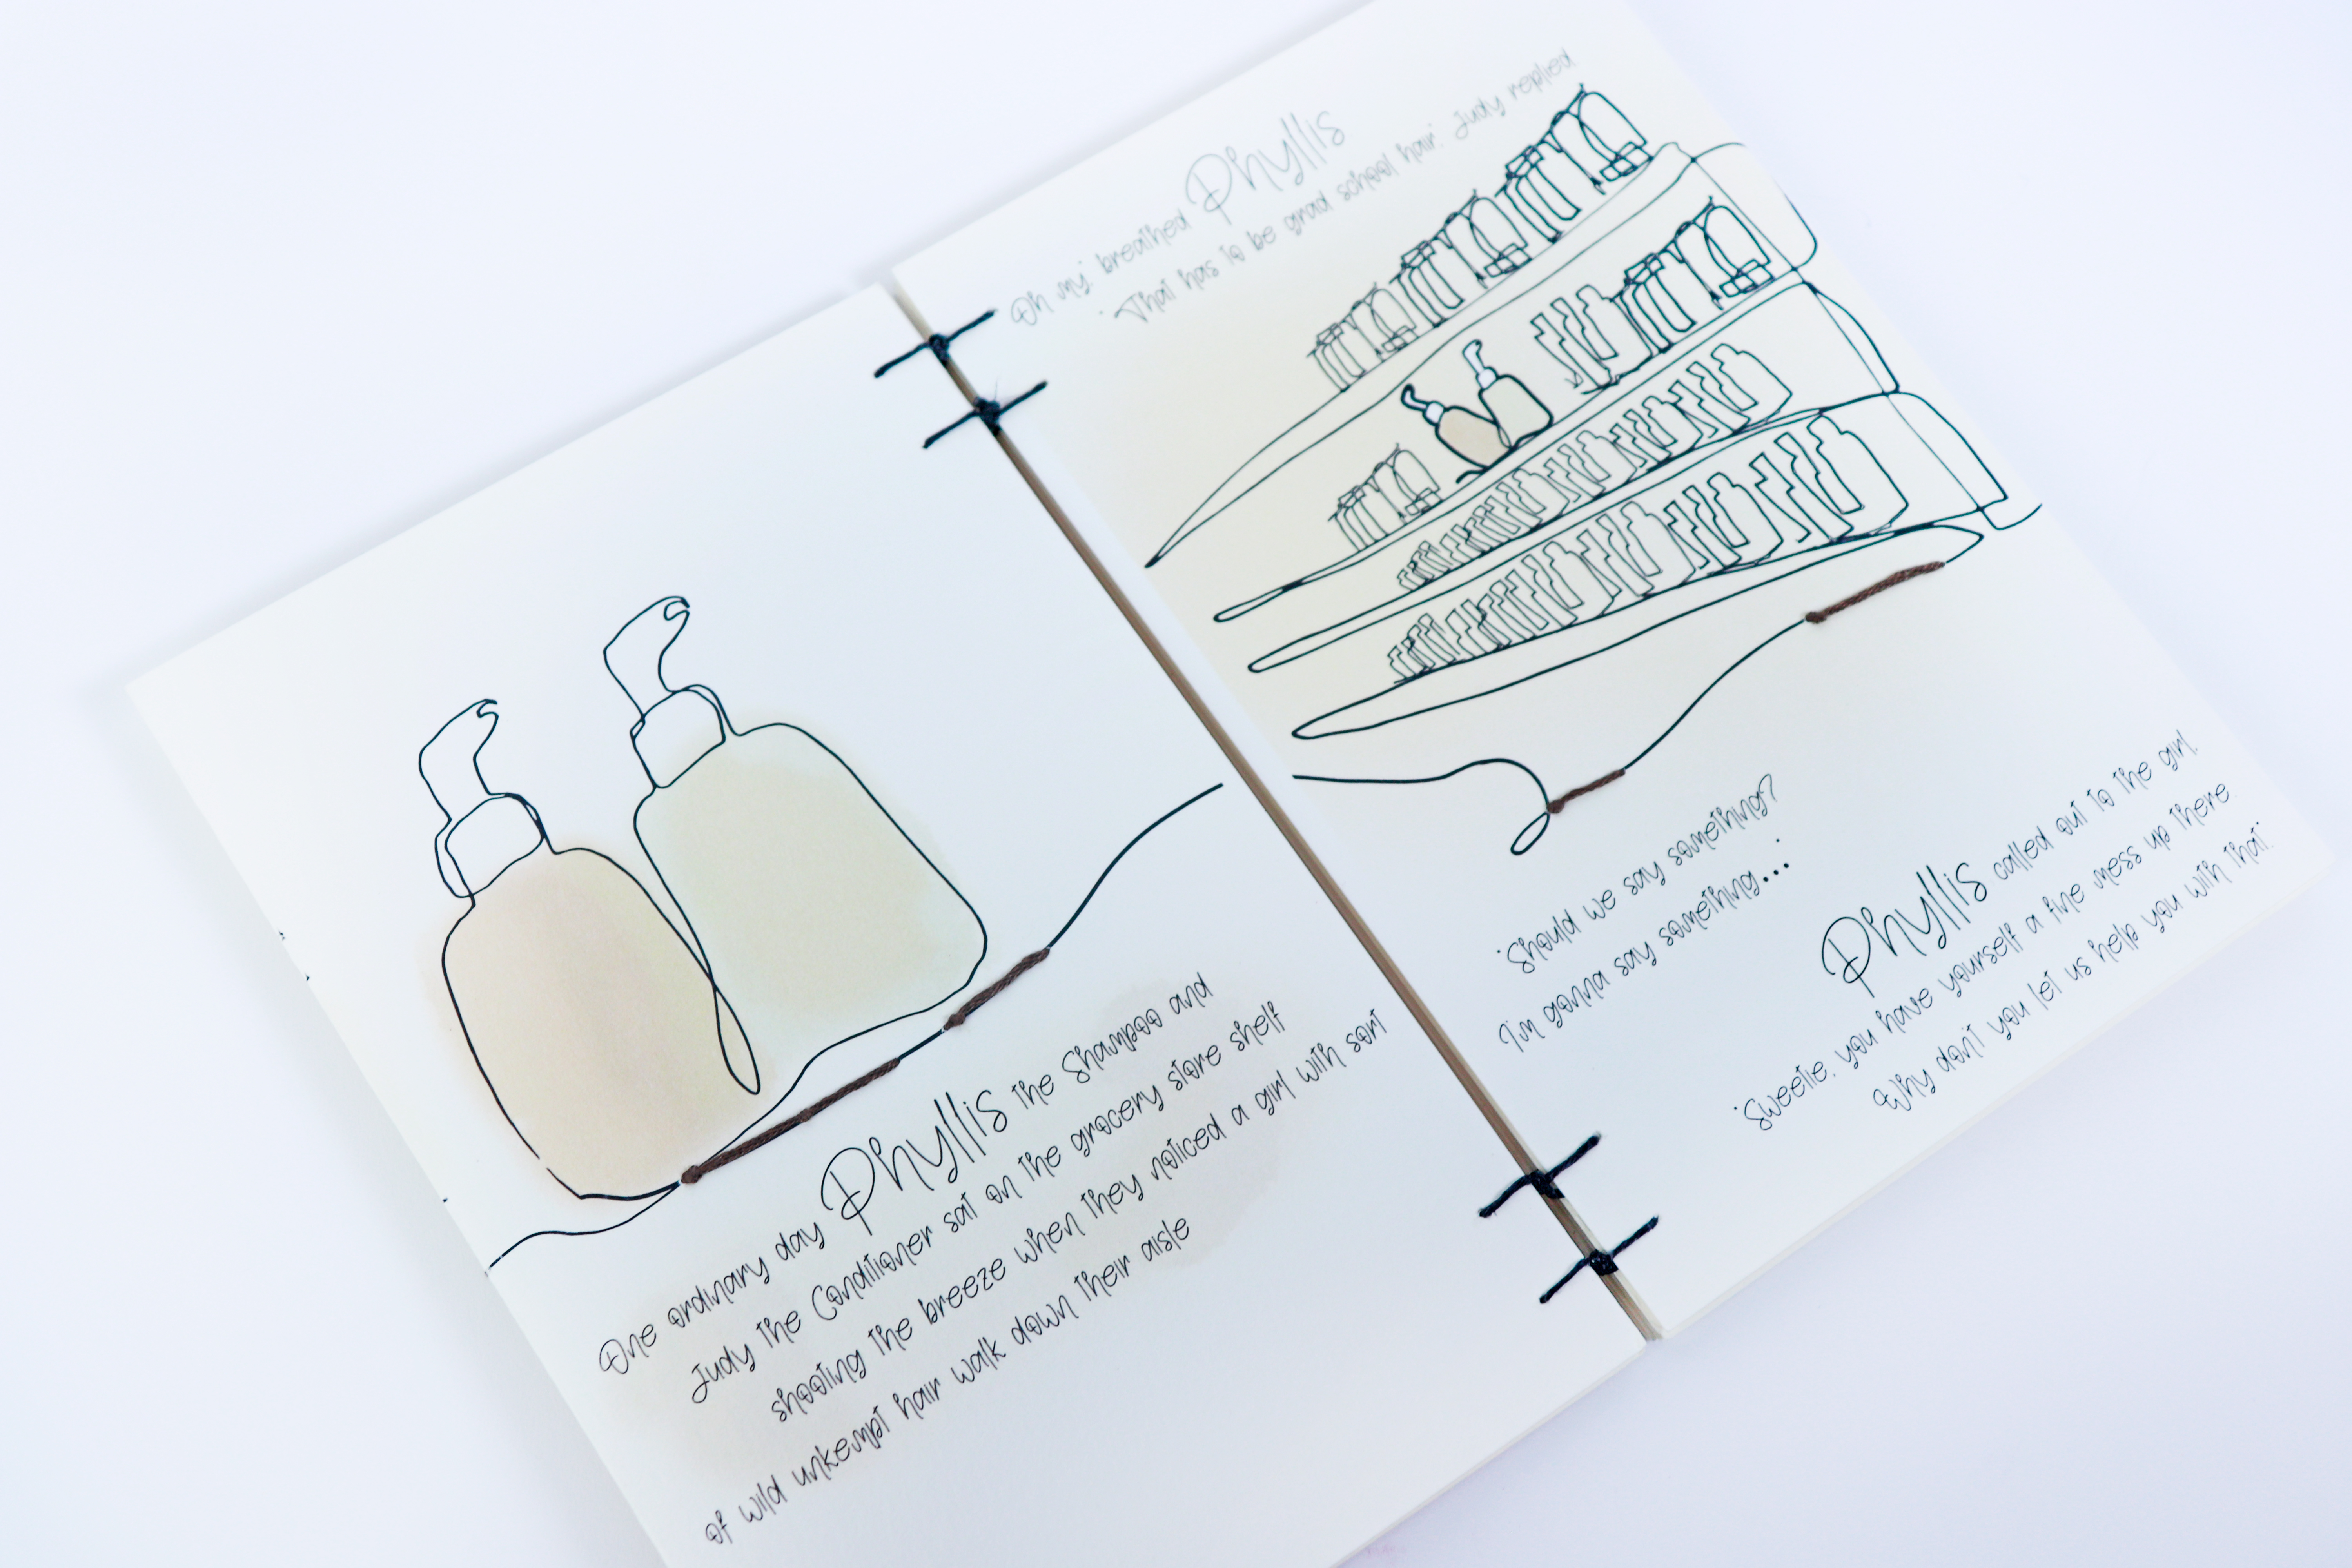 One ordinary day Phyllis the Shampoo and
Judy the Conditioner sat on the grocery store shelf
shooting the breeze when they noticed a girl with sort
of wild unkempt hair walk down their aisle
Oh my" breathed Phyllis
"That has to be grad school hair." Judy replied
"Should we say something?
I'm gonna say something..."
Phyllis called out to the girl,
"Sweetie, you have yourself a fine mess up there
Why don't you let us help you with that."